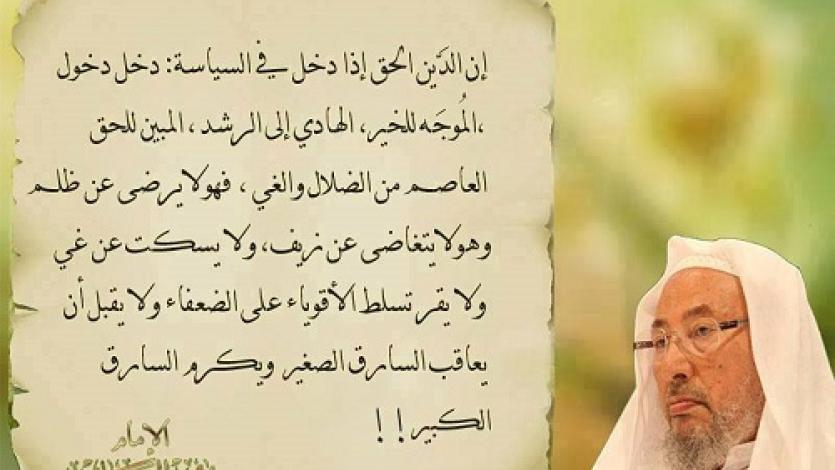 إن الدَّين الحق إذا دخل في السياسة: دخل دخول
،المُوجَه للخير، الهادي إلى الرشد، المبين للحق
العاصم من الضلال والغي، فهولايرضى عن ظلم
وهولايتغاضى عن زيف، ولا يسكت عن غي
ولا يقر تسلط الأقوياء على الضعفاء ولا يقبل أن
يعاقب السارق الصغير ويكرم السارق
الكبير!!
الإمام